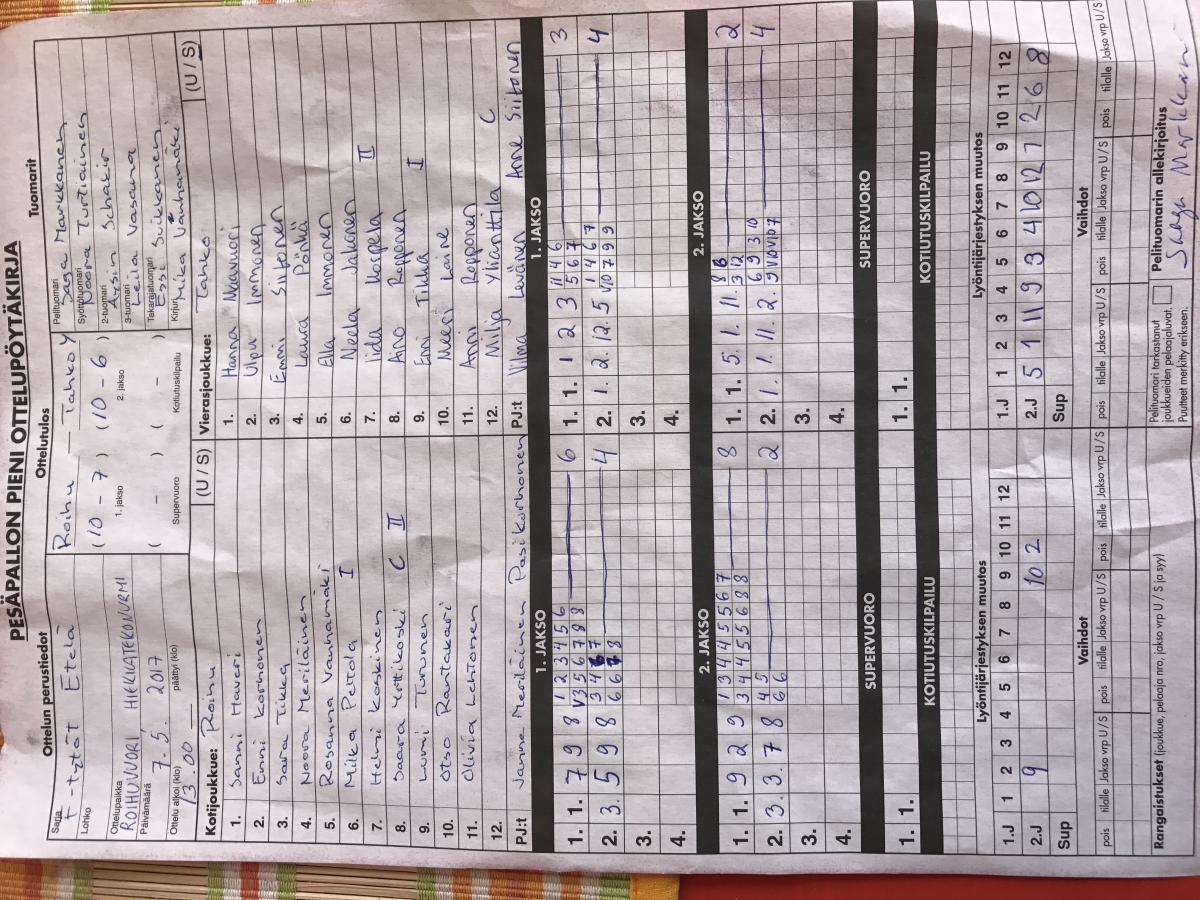 PESÄPALLON PIENI OTTELUPÖYTÄKIRJA
Ottelun perustiedot
Ottelutulos
Tuomarit
Sarja
F-tytöt Etelä
Lohko
Ottelupaikka
ROIHUVUORI HIEKKATEKONURMI
Päivämäärä
7.5. 2017
Ottelu alkoi (klo)
13.00
päättyi (klo)
Roihu — Tahko Y
(10 - 7) (10 - 6)
1. jakso
2. jakso
( - ) ( - )
Supervuoro
Kotiutuskilpailu
Pelituomari
Saga Markkanen
Syöttötuomari
Noora Turtiainen
2-tuomari
Aysin Schakir
3-tuomari
Leila Vasama
Takarajatuomari
Essi Suikkanen
Kirjuri
Mika Vanhamäki
Kotijoukkue: Roihu (U / S)
1. Sanni Haveri
2. Enni Korhonen
3. Sara Tikka
4. Noora Meriläinen
5. Rosanna Vanhamäki
6. Milka Peltola I
7. Helmi Koskinen
8. Saara Yrttikoski C II
9. Lumi Turunen
10. Otso Rantakari
11. Olivia Lehtonen
12.
PJ:t Janne Meriläinen Pasi Korhonen
Vierasjoukkue: Tahko (U / S)
1. Hanna Muavuori
2. Ulpu Immonen
3. Emmi Siitonen
4. Laura Pölkii
5. Ella Immonen
6. Neela Jakonen
7. Iida Korpela II
8. Aino Ropponen
9. Enni Tikka I
10. Meeri Laine
11. Anni Ropponen
12. Milja Ylianttila C
PJ:t Vilma Leväinen Anne Siitonen
1. JAKSO
1. JAKSO
1. 1. 7 9 8 1 2 3 4 5 6 6
V3 5 6 7 8 8
2. 3. 5 9 8 3 4 6 7 4
6 6 7 8
3.
4.
1. 1. 1 2 3 11 4 6 3
5 6 7
2. 1. 2. 12. 5 1 4 6 7 4
V10 7 9 9
3.
4.
2. JAKSO
2. JAKSO
1. 1. 9 2 9 1 3 4 4 5 5 6 7 8
3 4 4 5 5 6 8 8
2. 3. 3. 7 8 4 5 2
6 6
3.
4.
1. 1. 5. 1. 11. 8 8 2
3 12
2. 1. 1. 11. 2. 6 9 3 10 4
9 V10 V10 7
3.
4.
SUPERVUORO
SUPERVUORO
1. 1.
1. 1.
KOTIUTUSKILPAILU
KOTIUTUSKILPAILU
Lyöntijärjestyksen muutos
Lyöntijärjestyksen muutos
1.J 1 2 3 4 5 6 7 8 9 10 11 12
2.J 9 10 2
Sup
1.J 1 2 3 4 5 6 7 8 9 10 11 12
2.J 5 1 11 9 3 4 10 12 7 2 6 8
Sup
Vaihdot
Vaihdot
pois tilalle Jakso vrp U/S pois tilalle Jakso vrp U/S pois tilalle Jakso vrp U/S
pois tilalle Jakso vrp U/S pois tilalle Jakso vrp U/S pois tilalle Jakso vrp U/S
Rangaistukset (joukkue, pelaaja nro, jakso vrp U / S ja syy)
Pelituomari tarkastanut
joukkueiden pelaajaluvat.
Puutteet merkitty erikseen.
Pelituomarin allekirjoitus
Saaga Markkanen